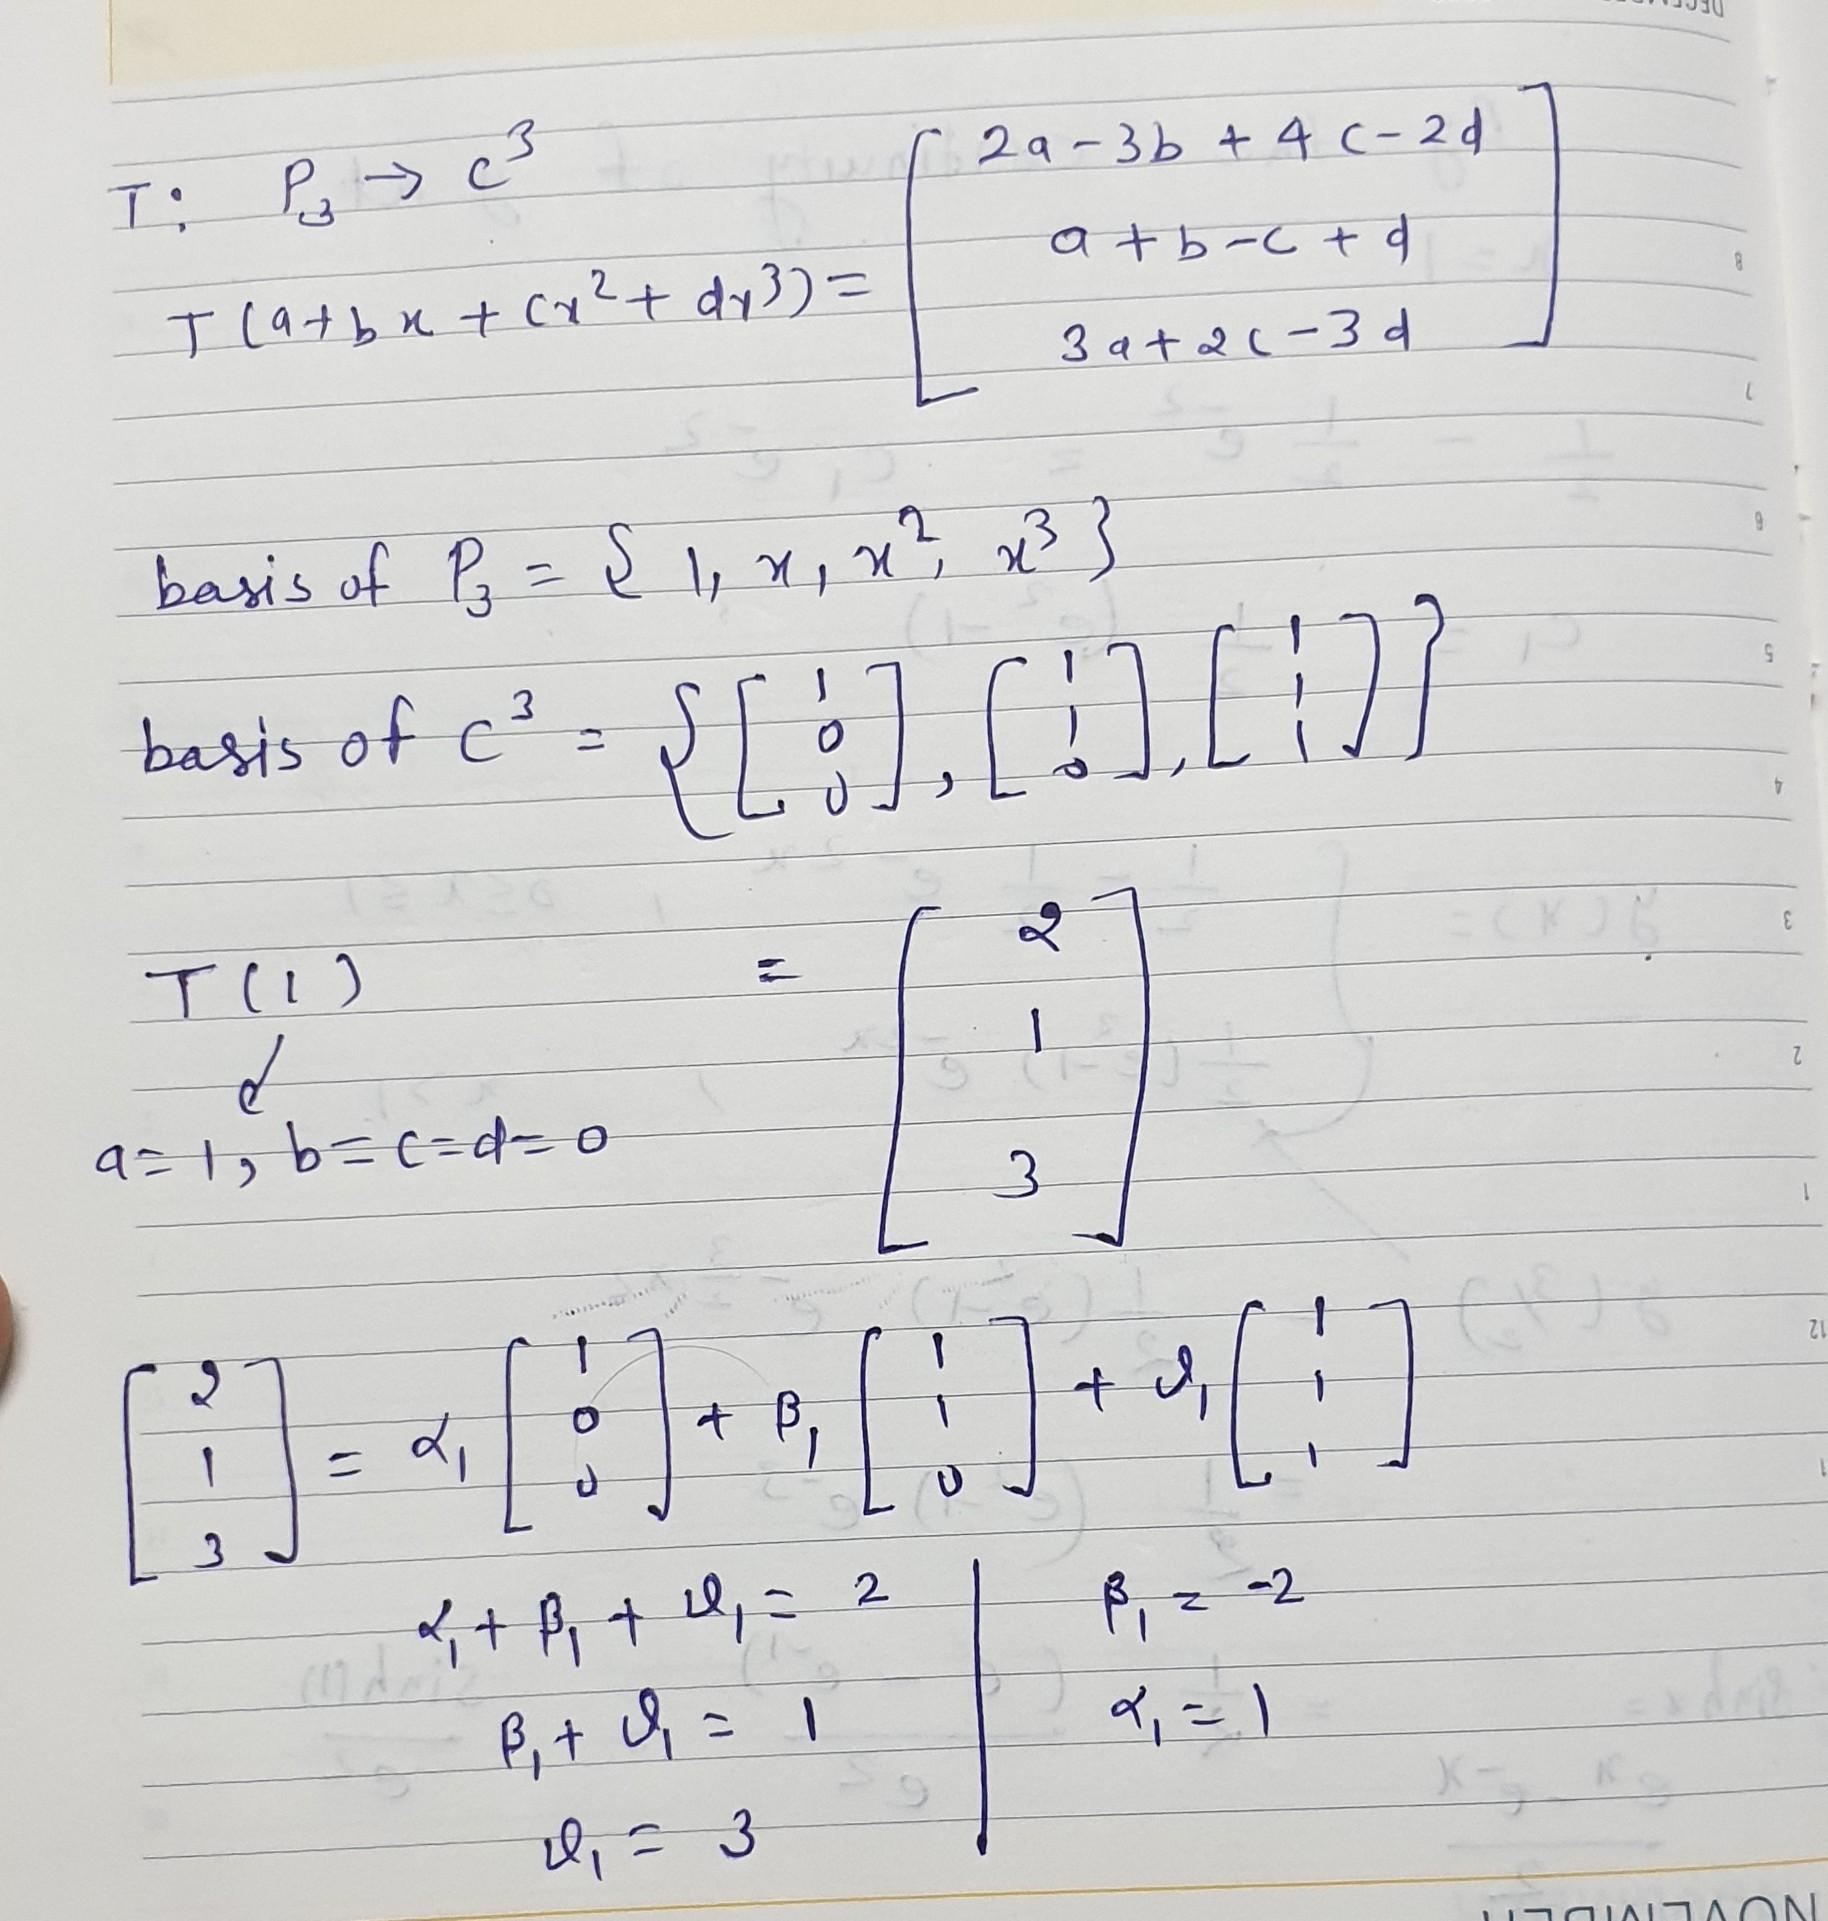 T: P₃ → C³
T(a+bx+cx²+dx³) = [2a-3b+4c-2d
a+b-c+d
3a+2c-3d]
basis of P₃ = {1, x, x², x³}
basis of C³ = {[1 0 0], [1 1 0], [1 1 1]}
T(1) = [2 1 3]
a=1, b=c=d=0
[2 1 3] = α₁[1 0 0] + β₁[1 1 0] + γ₁[1 1 1]
α₁+β₁+γ₁ = 2
β₁+γ₁ = 1
γ₁ = 3
β₁ = -2
α₁ = 1
8
7
6
5
4
3
2
1
12
NOVEMBER